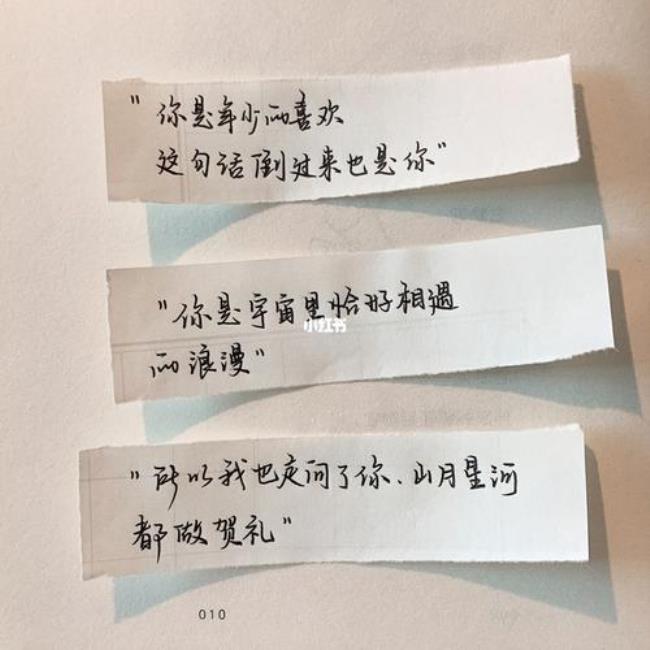 "你是年少的喜欢
这句话倒过来也是你"
"你是宇宙里恰好相遇
的浪漫"
小红书
"所以我也走向了你、山月星河
都做贺礼"
010